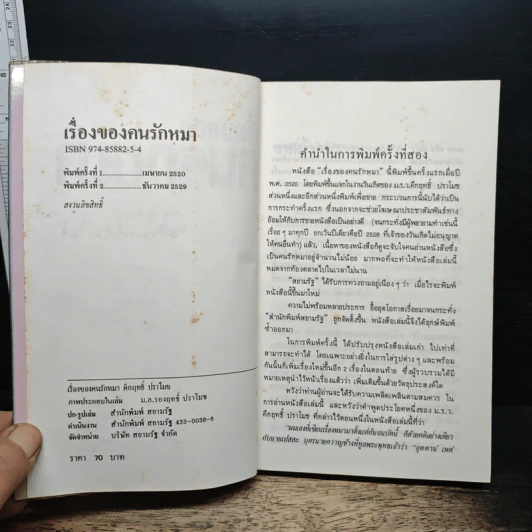 เรื่องของคนรักหมา
ISBN 974-85882-5-4
พิมพ์ครั้งที่ 1................เมษายน 2520
พิมพ์ครั้งที่ 2................ธันวาคม 2529
สงวนลิขสิทธิ์
เรื่องของคนรักหมา คึกฤทธิ์ ปราโมช
ภาพประกอบในเล่ม ม.ล.รองฤทธิ์ ปราโมช
ปก-รูปเล่ม สำนักพิมพ์ สยามรัฐ
ดำเนินงาน สำนักพิมพ์ สยามรัฐ 433-0036-8
จัดจำหน่าย บริษัท สยามรัฐ จำกัด
ราคา 70 บาท
คำนำในการพิมพ์ครั้งที่สอง
หนังสือ "เรื่องของคนรักหมา" นี้พิมพ์ขึ้นครั้งแรกเมื่อปี
พ.ศ. 2520 โดยพิมพ์ขึ้นแจกในงานวันเกิดของ ม.ร.ว.คึกฤทธิ์ ปราโมช
ส่วนหนึ่งและอีกส่วนหนึ่งพิมพ์เพื่อขาย กระบวนการนี้นับได้ว่าเป็น
การกระทำครั้งแรก ซึ่งนอกจากจะช่วยโฆษณาประชาสัมพันธ์ทาง
อ้อมให้กับการขายหนังสือเป็นอย่างดี (จนกระทั่งมีผู้พยายามทำเช่นนี้
เรื่อย ๆ มาทุกปี ยกเว้นปีเดียวคือปี 2528 ที่เจ้าของวันเกิดไม่อนุญาต
ให้คนอื่นทำ) แล้ว, เนื้อหาของหนังสือก็ดูจะจับใจคนอ่านหนังสือซึ่ง
เป็นคนรักหมาอยู่จำนวนไม่น้อย มากพอที่จะทำให้หนังสือเล่มนี้
หมดจากท้องตลาดไปในเวลาไม่นาน
"สยามรัฐ" ได้รับการทวงถามอยู่เนือง ๆ ว่า เมื่อไรจะพิมพ์
หนังสือนี้ขึ้นมาใหม่
ความไม่พร้อมหลายประการ ยื้อยุดโอกาสเรื่อยมาจนกระทั่ง
"สำนักพิมพ์สยามรัฐ" ถูกจัดตั้งขึ้น หนังสือเล่มนี้จึงได้ฤกษ์พิมพ์
ซ้ำออกมา
ในการพิมพ์ครั้งนี้ ได้ปรับปรุงหนังสือเล่มเก่า ไปเท่าที่
สามารถจะทำได้ โดยเฉพาะอย่างยิ่งในการใส่รูปต่าง ๆ และพร้อม
กันนั้นก็เพิ่มเรื่องใหม่ขึ้นอีก 2 เรื่องในตอนท้าย ซึ่งผู้รวบรวมได้มี
หมายเหตุนำไว้หน้าเรื่องแล้วว่า เพิ่มเติมขึ้นด้วยวัตถุประสงค์ใด
หวังว่าท่านผู้อ่านจะได้รับความเพลิดเพลินตามสมควร ใน
การอ่านหนังสือเล่มนี้ และหวังว่าคำพูดประโยคหนึ่งของ ม.ร.ว.
คึกฤทธิ์ ปราโมช ที่กล่าวไว้ตอนหนึ่งในหนังสือเล่มนี้ที่ว่า
"ผมเองที่เขียนเรื่องหมามาตั้งแต่ต้นจนบัดนี้ ก็ด้วยคติอย่างเดียว
กับนายเปสสะ บุตรนายควาญช้างที่ทูลพระพุทธเจ้าว่า "อุตตานํ เหตํ